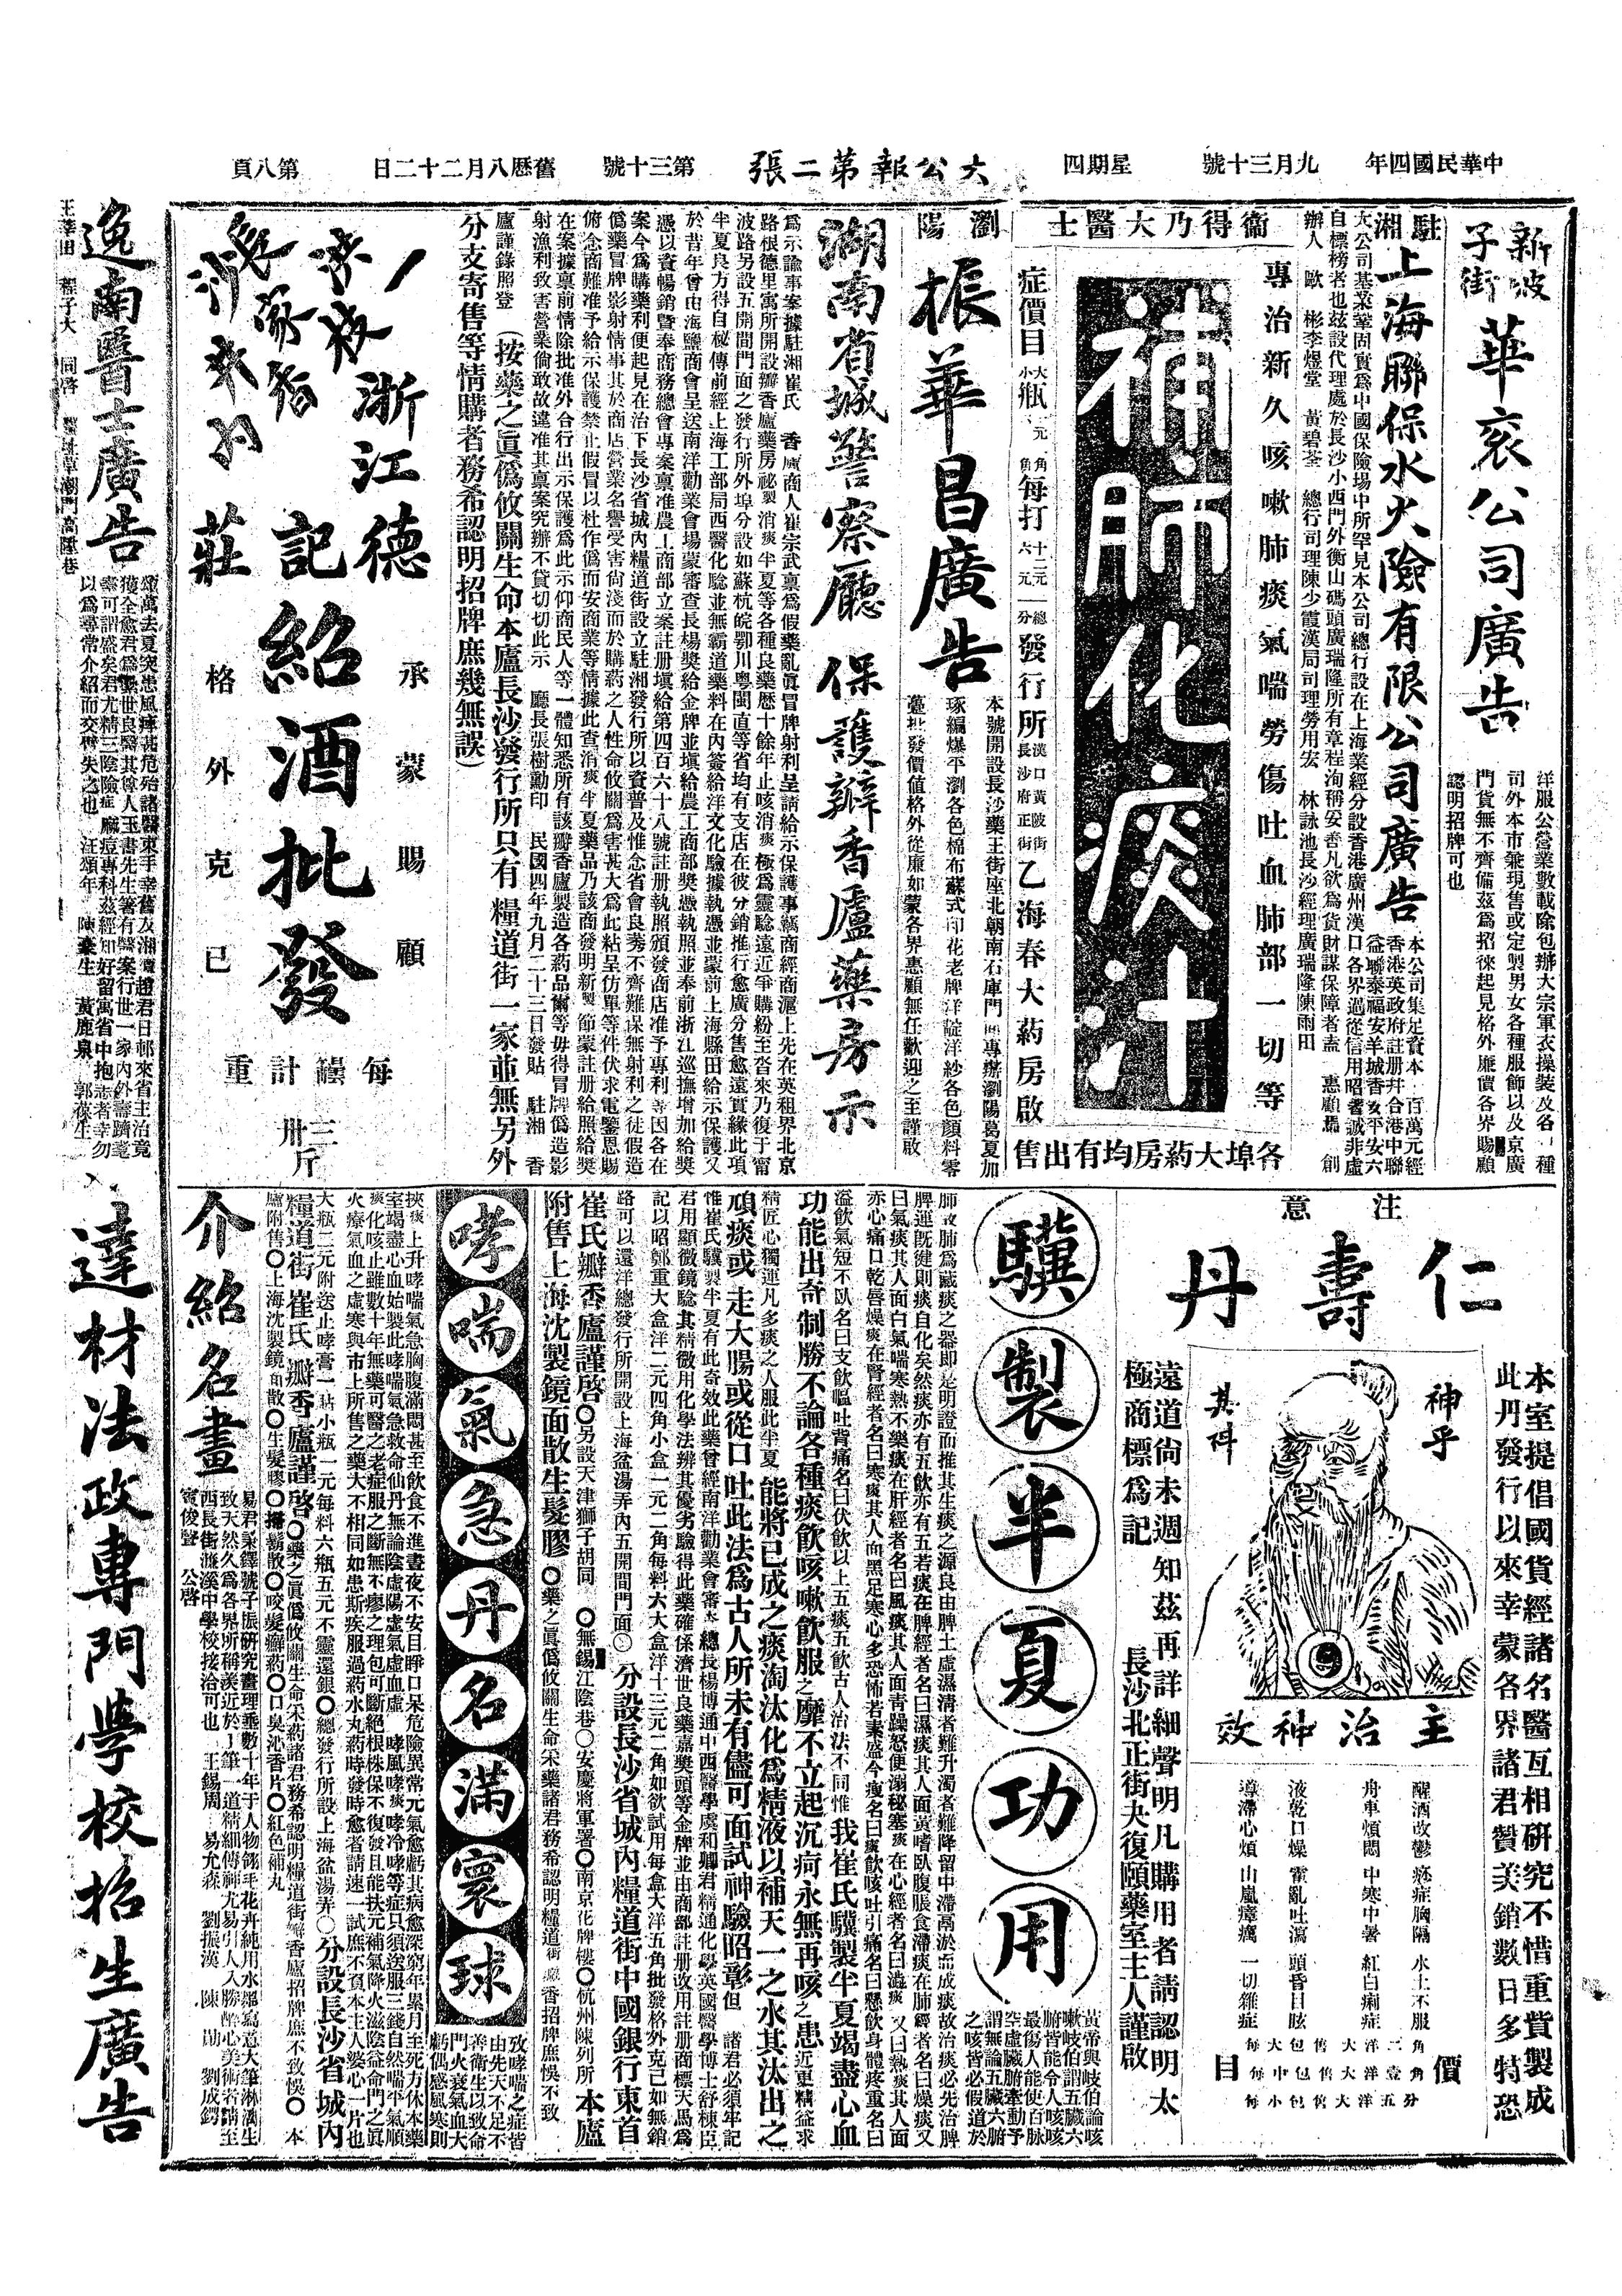 中華民國四年
九月三十號
星期四
大公報第二張
第三十號
舊歷八月二十二日
第八頁
新坡子街
華袞公司廣告
洋服公營業數載除包辦大宗軍衣操裝及各種
司外本市兼現售或定製男女各種服飾以及京廣
門貨無不齊備茲為招徠起見格外廉價各界賜顧
認明招牌可也
駐湘
上海聯保水火險有限公司廣告
大公司基業鞏固實為中國保險塲中所罕見本公司總行設在上海業經分設香港廣州漢口各界過從信用昭著誠非虛
自標榜者也茲設代理處於長沙小西門外衡山碼頭廣瑞隆所有章程洵稱妥善凡欲為貨財謀保障者盍
辦人
總行司理陳少霞漢局司理勞用宏 林詠池長沙經理廣瑞隆陳雨田
衛得乃大醫士
專治新久咳嗽肺痰氣喘勞傷吐血肺部一切等
補肺化痰汁
症價目
發行所
漢口黃陂街
長沙府正街
乙海春大葯房啟
各埠大葯房均有出售
瀏陽
振華昌廣告
本號開設長沙藥王街座北朝南石庫門面專辦瀏陽葛夏加
琢編爆平瀏各色棉布蘇式印花老牌洋靛洋紗各色顏料零
躉批發價值格外從廉如蒙各界惠顧無任歡迎之至謹啟
湖南省城警察廳 保護瓣香廬藥房示
為示諭事案據駐湘崔氏 香廬商人崔宗武稟為假藥亂眞冒牌射利呈請給示保護事竊商經商滬上先在英租界北京
路根德里寓所開設瓣香廬藥房祕製消痰半夏等各種良藥歷十餘年止咳消痰極為靈驗遠近爭購紛至沓來乃復于甯
波路另設五開間門面之發行所外埠分設如蘇杭皖鄂川粤閩直等省均有支店在彼分銷推行愈廣分售愈遠實緣此項
半夏良方得自秘傳前經上海工部局西醫化驗並無霸道藥料在內簽給洋文化驗據執憑並蒙前上海縣田給示保護又
於昔年曾由海鹽商會呈送南洋勸業會場蒙審查長楊獎給金牌並塡給農工商部獎憑執照並奉前浙江巡撫增加給獎
憑以資暢銷暨奉商務總會專案稟准農工商部立案註册塡給第四百六十八號註册執照頒發商店准予專利等因各在
案今為購藥利便起見在治下長沙省城內糧道街設立駐湘發行所以資普及惟念省會良莠不齊難保無射利之徒假造
偽藥冒牌影射情事其於商店營業名譽受害尙淺而於購葯之人性命攸關為害甚大為此粘呈仿單等件伏求電鑒恩賜
俯念商難准予給示保護禁止假冒以杜作偽而安商業等情據此查消痰半夏藥品乃該商發明新製節蒙註册給照給獎
在案據稟前情除批准外合行出示保護為此示仰商民人等一體知悉所有該瓣香廬製造各葯品爾等毋得冒牌偽造影
射漁利致害營業倘敢故違准其稟案究辦不貸切切此示 廳長張樹勳印 民國四年九月二十三日發貼 駐湘 香
廬謹錄照登
（按藥之眞偽攸關生命本廬長沙發行所只有糧道街一家並無另外
分支寄售等情購者務希認明招牌庶幾無誤）
浙江
德記莊
紹酒批發
承蒙賜顧
格外克已
每罎計重
三卅斤
逸南醫士廣告
頌萬去夏突患風痺甚危殆諸醫束手幸舊友湘寶趙君日邨來省主治竟
以為尋常介紹而交臂失之也 汪頌年
黃鹿泉 郭葆生
達材法政專門學校招生廣告
注意
仁壽丹
神乎其神
主治神效
本室提倡國貨經諸名醫互相研究不惜重貲製成
此丹發行以來幸蒙各界諸君贊美銷數日多特恐
遠道尙未週知茲再詳細聲明凡購用者請認明太
極商標為記
長沙北正街夬復頤藥室主人謹啟
醒酒改鬱 痧症胸隔 水土不服
舟車煩悶 中寒中暑 紅白痢症
液乾口燥 霍亂吐瀉 頭昏目眩
導滯心煩 山嵐瘴癘 一切雜症
價目
每大包售大洋二角
每中包售大洋壹角
每小包售大洋五分
驥製半夏功用
黃帝與岐伯論咳
嗽岐伯謂五臟六
腑皆能令人咳嗽
最傷人能使百脉
空虛臟腑牽動予
謂無論五臟六腑
之咳皆必假道於
肺故肺為藏痰之器即是明證而推其生痰之源良由脾土虛濕清者難升濁者難降留中滯鬲淤而成痰故治痰必先治脾
脾運旣健則痰自化矣然痰亦有五飲亦有五若痰在脾經者名曰濕痰其人面黃嗜臥腹脹食滯痰在肺經者名曰燥痰又
曰氣痰其人面白氣喘寒熱不樂痰在肝經者名曰風痰其人面靑躁怒便溺秘塞痰在心經者名曰熱痰其人面
赤心痛口乾唇燥痰在腎經者名曰寒痰其人面黑足寒心多恐怖若素盛今瘦名曰痰飲咳吐引痛名曰懸飲身體疼重名曰
溢飲氣短不臥名曰支飲嘔吐背痛名曰伏飲以上五痰五飲古人治法不同惟我崔氏驥製半夏竭盡心血
功能出奇制勝不論各種痰飲咳嗽飲服之靡不立起沉疴永無再咳之患近更精益求
精匠心獨運凡多痰之人服此半夏能將已成之痰淘汰化為精液以補天一之水其汰出之
頑痰或走大腸或從口吐此法為古人所未有儘可面試神驗昭彰但 諸君必須牢記
惟崔氏驥製半夏有此奇效此藥曾經南洋勸業會審查總長楊博通中西醫學虞和卿君精通化學英國醫學博士舒棟臣
君用顯微鏡驗其精微用化學法辨其優劣驗得此藥確係濟世良藥嘉獎頭等金牌並由商部註册改用註册商標天馬為
記以昭鄭重大盒洋二元四角小盒一元二角每料六大盒洋十三元二角如欲試用每盒大洋五角批發格外克己如無銷
路可以還洋總發行所開設上海盆湯弄內五開間門面○分設長沙省城內糧道街中國銀行東首
崔氏瓣香廬謹啓○另設天津獅子胡同 ○無錫江陰巷○安慶將軍署○南京花牌樓○杭州陳列所 本廬
附售上海沈製鏡面散生髮膠 ○藥之眞偽攸關生命宋藥諸君務希認明糧道街瓣香招牌庶悞不致
哮喘氣急丹名滿寰球
攷哮喘之症皆
由先天不足不
善衛生以致命
門火衰氣血大
虧偶感風寒則
挾痰上升哮喘氣急胸腹滿悶甚至飲食不進晝夜不安目睜口呆危險異常元氣愈虧其病愈深窮年累月至死方休本藥
室竭盡心血始製此哮喘氣急救命仙丹無論陰虛陽虛氣虛血虛 哮風哮痰哮冷哮等症只須送服三錢自然喘平氣順
痰化咳止雖數十年無藥可醫之老症服之斷無不瘳之理包可斷絕根株保不復發且能扶元補氣降火滋陰益命門之眞
火療氣血之虛寒與市上所售之藥大不相同如患斯疾服過葯水丸葯時發時愈者請速一試庶不負本主人婆心一片也
大瓶二元附送止哮膏一粘小瓶一元每料六瓶五元不靈還銀○總發行所設上海盆湯弄○分設長沙省城內
糧道街崔氏瓣香廬謹啓○藥之眞偽攸關生命宋葯諸君務希認明糧道街瓣香廬招牌庶不致悞○ 本
廬附售○上海沈製鏡面散○生髮膠○ ○咬髮癬葯○口臭沁香片○紅色補丸
介紹名畫
易君 鐸號子振硏究畫理垂數十年于人物翎毛花卉純用水墨寫意大筆淋漓生
致天然久為各界所稱羨近於工筆一道精細傳神尤易引人入勝醉心美術者請至
西長街濂溪中學校接洽可也 王錫周 易允森 劉振漢 陳勛 劉成鍔
公啓